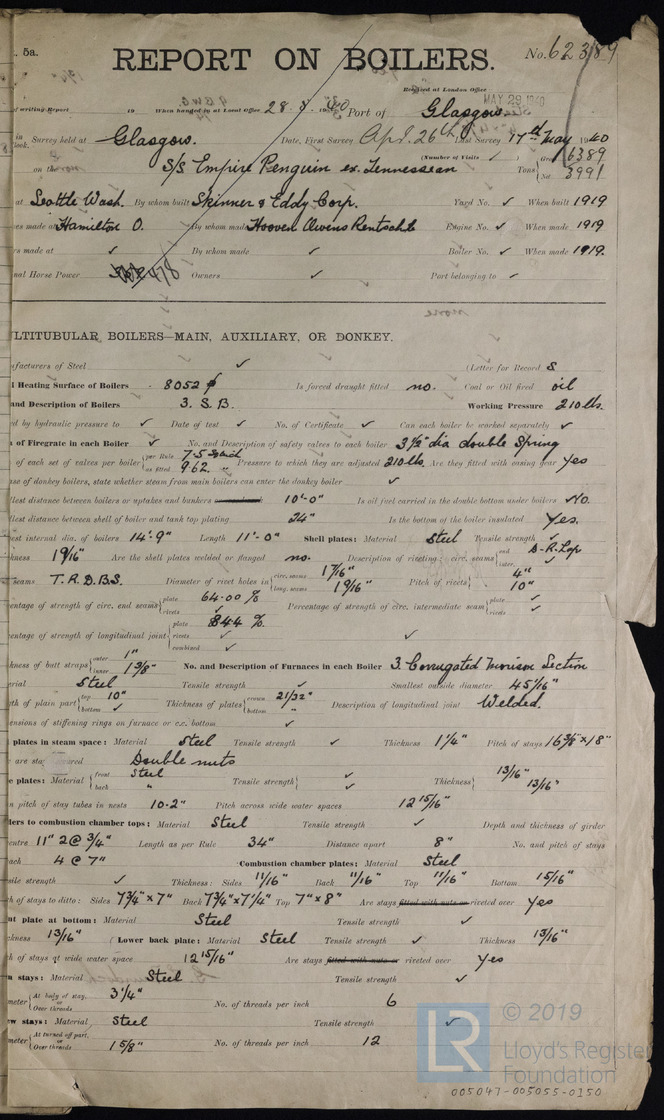 5a.
REPORT ON BOILERS.
No. 62389
Received at London Office
MAY 29 1940
of writing Report 19 When handed in at Local Office 28.5.1940 Port of Glasgow
in Survey held at Glasgow. Date, First Survey Apl. 26th Last Survey 17th May 1940
on the S/S Empire Penguin ex. Tennessean (Number of Visits ✓) Tons Gross 6389
Net 3991
at Seattle Wash. By whom built Skinner & Eddy Corp. Yard No. ✓ When built 1919
made at Hamilton O. By whom made Hooven Owens Rentschl Engine No. ✓ When made 1919
made at ✓ By whom made ✓ Boiler No. ✓ When made 1919.
nal Horse Power 478 Owners ✓ Port belonging to ✓
LTITUBULAR BOILERS—MAIN, AUXILIARY, OR DONKEY.
ufacturers of Steel ✓ (Letter for Record S
l Heating Surface of Boilers 8052 Is forced draught fitted no. Coal or Oil fired oil
and Description of Boilers 3. S.B. Working Pressure 210 lbs.
d by hydraulic pressure to ✓ Date of test ✓ No. of Certificate ✓ Can each boiler be worked separately ✓
of Firegrate in each Boiler ✓ No. and Description of safety valves to each boiler 3½" dia double Spring
of each set of valves per boiler per Rule 7.5
as fitted 9.62 " Pressure to which they are adjusted 210 lbs. Are they fitted with easing gear Yes
se of donkey boilers, state whether steam from main boilers can enter the donkey boiler ✓
lest distance between boilers or uptakes and bunkers 10'-0" Is oil fuel carried in the double bottom under boilers No.
lest distance between shell of boiler and tank top plating 24" Is the bottom of the boiler insulated Yes.
est internal dia. of boilers 14'-9" Length 11'-0" Shell plates: Material Steel Tensile strength ✓
kness 1 9/16" Are the shell plates welded or flanged no. Description of riveting: circ. seams end D-R.Lap
inter. ✓
seams T.R.D.B.S. Diameter of rivet holes in circ. seams 1 7/16"
long. seams 1 9/16" Pitch of rivets 4"
10"
centage of strength of circ. end seams plate 64.00 %
rivets ✓ Percentage of strength of circ. intermediate seam plate ✓
rivets ✓
centage of strength of longitudinal joint plate 84.4 %
rivets ✓
combined ✓
kness of butt straps outer 1"
inner 1 3/8" No. and Description of Furnaces in each Boiler 3. Corrugated Morison Section
erial Steel Tensile strength ✓ Smallest outside diameter 45 1/16"
gth of plain part top 10"
bottom ✓ Thickness of plates crown 21/32"
bottom " Description of longitudinal joint Welded.
ensions of stiffening rings on furnace or c.c. bottom ✓
plates in steam space: Material Steel Tensile strength ✓ Thickness 1 1/4" Pitch of stays 16 3/8" x 18"
are stays secured Double nuts
e plates: Material front Steel
back " Tensile strength ✓
✓ Thickness 13/16"
13/16"
n pitch of stay tubes in nests 10.2" Pitch across wide water spaces 12 15/16"
ders to combustion chamber tops: Material Steel Tensile strength ✓ Depth and thickness of girder
centre 11" 2 @ 3/4" Length as per Rule 34" Distance apart 8" No. and pitch of stays
each 4 @ 7" Combustion chamber plates: Material Steel
sile strength ✓ Thickness: Sides 11/16" Back 11/16" Top 11/16" Bottom 15/16"
h of stays to ditto: Sides 7 3/4" x 7" Back 7 3/4" x 7 1/4" Top 7" x 8" Are stays fitted with nuts or riveted over Yes
nt plate at bottom: Material Steel Tensile strength ✓
kness 13/16" (Lower back plate: Material Steel Tensile strength ✓ Thickness 13/16"
h of stays at wide water space 12 15/16" Are stays fitted with nuts or riveted over Yes
n stays: Material Steel Tensile strength ✓
meter At body of stay,
or
Over threads 3 1/4" No. of threads per inch 6
ew stays: Material Steel Tensile strength ✓
meter At turned off part,
or
Over threads 1 5/8" No. of threads per inch 12
LR
© 2019
Lloyd's Register
Foundation
005047-005055-0150